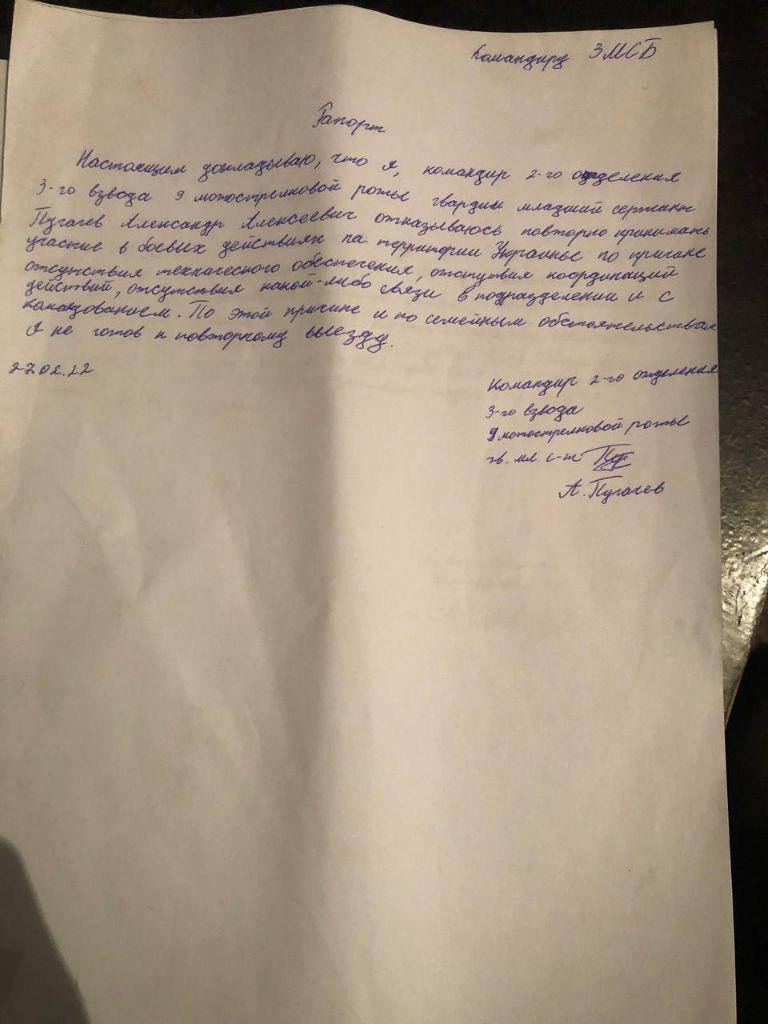 Командиру 3 МСБ
Рапорт
Настоящим докладываю, что я, командир 2-го отделения
3-го взвода 9 мотострелковой роты гвардии младший сержант
Пугачев Александр Алексеевич отказываюсь повторно принимать
участие в боевых действиях на территории Украины по причине
отсутствия технического обеспечения, отстутвия координаций
действий, отсутствия какой-либо связи в подразделении и с
командованием. По этой причине и по семейным обстоятельствам
я не готов к повторному выезду.
27.02.22
Командир 2-го отделения
3-го взвода
9 мотострелковой роты
гв. мл. с-т
А. Пугачев